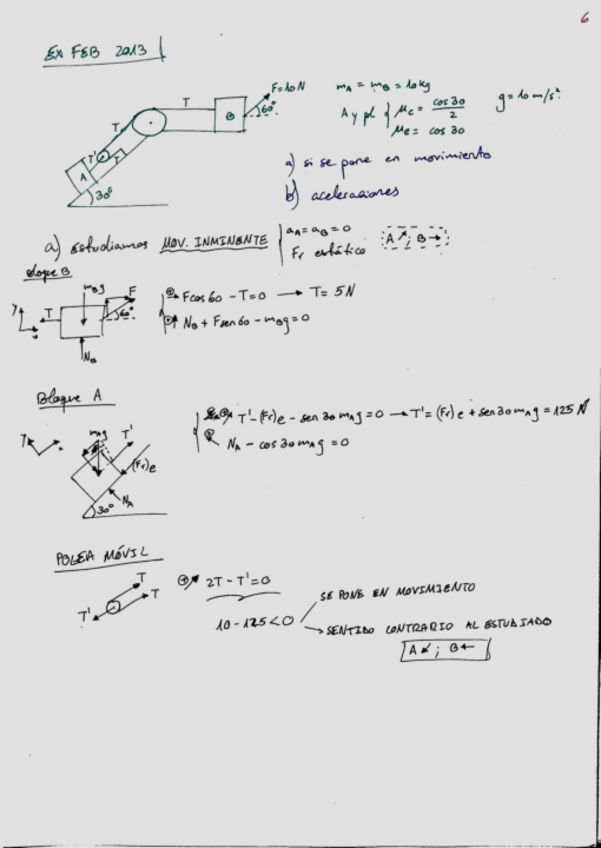 6
EX FEB 2013
F=10N
60º
T
B
T
T'
T
A
30º
mA = mB = 10kg
g=10m/s²
A y pl { μc = cos30/2
μe = cos 30
a) si se pone en movimiento
b) aceleraciones
a) Estudiamos MOV. INMINENTE { aA = aB = 0
Fr estático
A ↗ ; B →
Bloque B
mBg
F
T
60º
y
x
NB
⊕→ Fcos60 - T=0 → T= 5N
⊕↑ NB + Fsen60 - mBg=0
Bloque A
mAg
T'
y
x
(Fr)e
NA
30º
⊕↗ T'-(Fr)e - sen30mAg=0 → T'= (Fr)e + sen30mAg=125N
NA - cos30mAg=0
POLEA MÓVIL
T
T
T'
⊕↗ 2T - T'=0
10-125<0
SE PONE EN MOVIMIENTO
SENTIDO CONTRARIO AL ESTUDIADO
A ↙ ; B ←